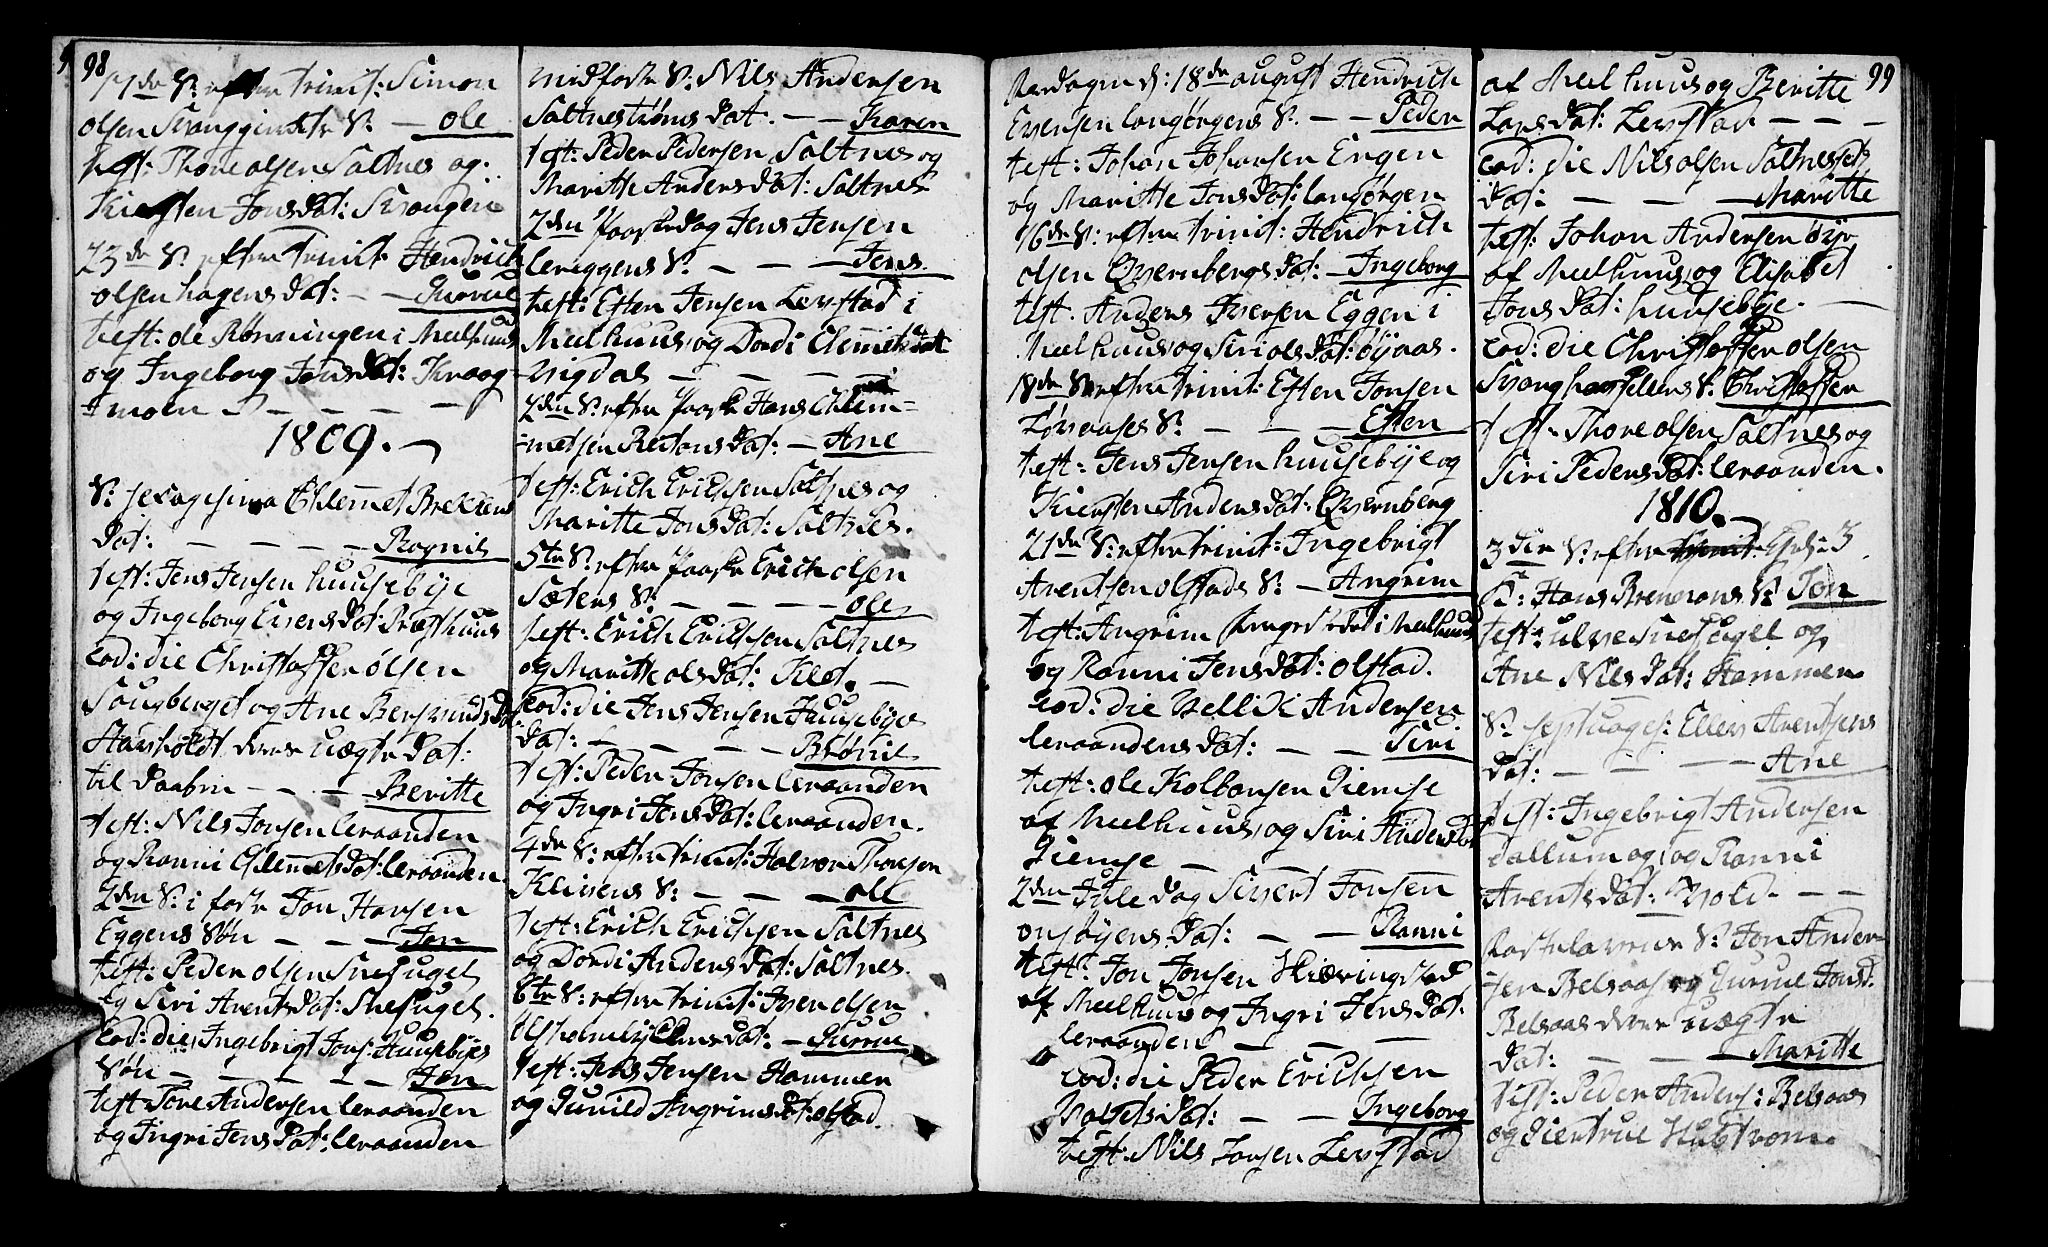 98
17de S: efter trinit: Simon
olsen Krogginetr S: — ole
test: Thore olsen Saltnes og
Kiersten Jons dat: Krogen
23de S: efter trinit: Hendrich
olsen hagens dat: — — Gurrue
test: de Rønningen i Meelhuus
og Ingeborg Jons dat: Kraag-
moen — — — —
1809. —
S: sexagesima Chlemet Brekkens
dat: — — — — Rognil
test: Jens Jensen huusebye
og Ingeborg Eivens dat: Præsthuus
eod: die Christoffer olsen
Sougberget og Ane
deres uægte dat:
til daaben — — — Beritte
test: Nils Jonsen leraanden
og Ranni Chlemets dat: leraanden.
2den S: i faste Jon Hansen
Eggens Søn — — — Jon
test: Peder olsen Snefugel
og Siri Arents dat: Snefugel.
eod: die Ingebrigt Jons: Huusebyes
Søn — — — — — Jon
test: Tore Andersen leraanden
og Ingri Jens dat: leraanden
midfaste S: Nils Andersen
Saltnestrøms dat. — — Karen
test: Peder Pedersen Saltnes og
Maritte Anders dat: Saltnes
2den Paaske dag Jens Jensen
leriggens S: — — — Jens
test: Esten Jensen Levstad i
Meelhuus og Dordi Clemets dat
Wigdal — — — —
2den S: efter Paaske Hans Chlem=
=metsen Restans dat: — Ane
test: Erich Erichsen Saltnes og
Maritte Jons dat: Saltnes.
5te S: efter Paaske Erich olsen
Sætens S: — — — — ole
test: Erich Erichsen Saltnes
og Maritte ols dat: Klet. —
eod: die Jens Jensen Huusebyes
dat: — — — — Brønil
test: Peder Jonsen leraanden
og Ingri Jons dat: leraanden.
4de S: efter trinit: Halvor Thorsen
Klivens S: — — — ole
test: Erich Erichsen Saltnes
og Dordi Anders dat: Saltnes.
8te S: efter trinit: Iven olsen
dat: — Gurrue
test: Jens Jensen Hammer
og Gunild Angrims dat: olstad.
Søndagen d: 18de august Hendrich
Evensen langørgens S. — — Peder
test: Johan Johansen Engen
og Maritte Jons dat: langørgen
16de S: efter trinit: Hendrich
olsen Qvernbergs dat: — Ingeborg
test. Anders Iversen Eggen i
Meelhuus og Siri ols dat: øyaas.
18de S: efter trinit: Esten Jonsen
Løvaases S: — — — Esten
test: Jens Jensen huusebye og
Kiersten Anders dat: Qvernberg
21de S: efter trinit: Ingebrigt
Arentsen olstads S: — Angrim
test: Angrim i Meelhuus
og Ranni Jens dat: olstad.
eod: die Andersen
leraandens dat: — — Siri
test: ole Kolbonsen Gimse
af Meelhuus og Siri Anders dat
Gimse — — —
2den Jule dag Sivert Jonsen
onsøyens dat: — — Ranni
test: Jon Jonsen Kiæringstad
af Meelhuus og Ingri Jens dat:
leraanden — — —
eod: die Peder Erichsen
dat: — — Ingeborg
test: Nils Jonsen Levstad
99
af Meelhuus og Beritte
Lars dat: Levstad — — —
eod: die Nils olsen
dat: — — — Maritte
test: Johan Andersen øye
af Meelhuus og Elisabet
Jons dat: huusebye. —
eod: die Christoffer olsen
S: Christoffer
test: Thore olsen Saltnes og
Siri Peders dat: leraanden.
1810. —
3die S: efter
Hans S: Jon
test: Snefugel og
Ane Nils dat: Hammer.
S: septuages: Ellev Arentsens
dat: — — — Ane
test: Ingebrigt Andersen
og Ranni
Arents dat: Wold. — —
S: Jon Ander-
sen Belsaas og Gurrue Jons d.
Belsaas deres uægte
dat: — — — Maritte
test: Peder Anders: Belsaas
og Giertrue